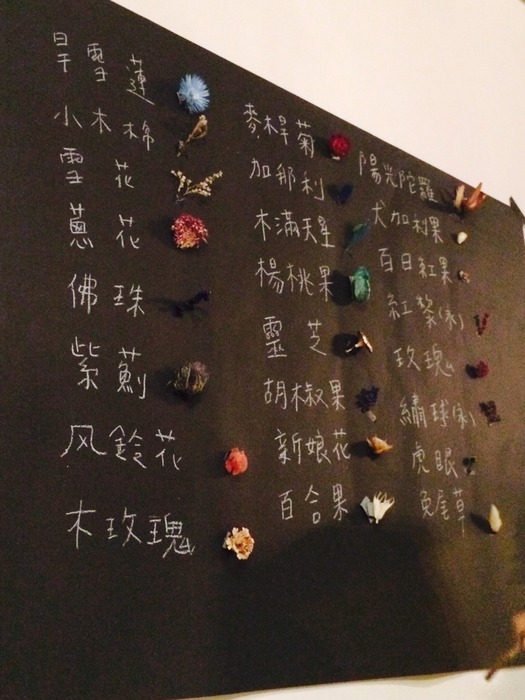 旱雪蓮
小木棉
雪花
蔥花
佛珠
紫薊
风鈴花
木玫瑰
麥桿菊
加那利
木滿天星
楊桃果
靈芝
胡椒果
新娘花
百合果
陽光陀羅
犬加利果
百日紅果
紅藜(家)
玫瑰
繡球(家)
虎眼
兔尾草